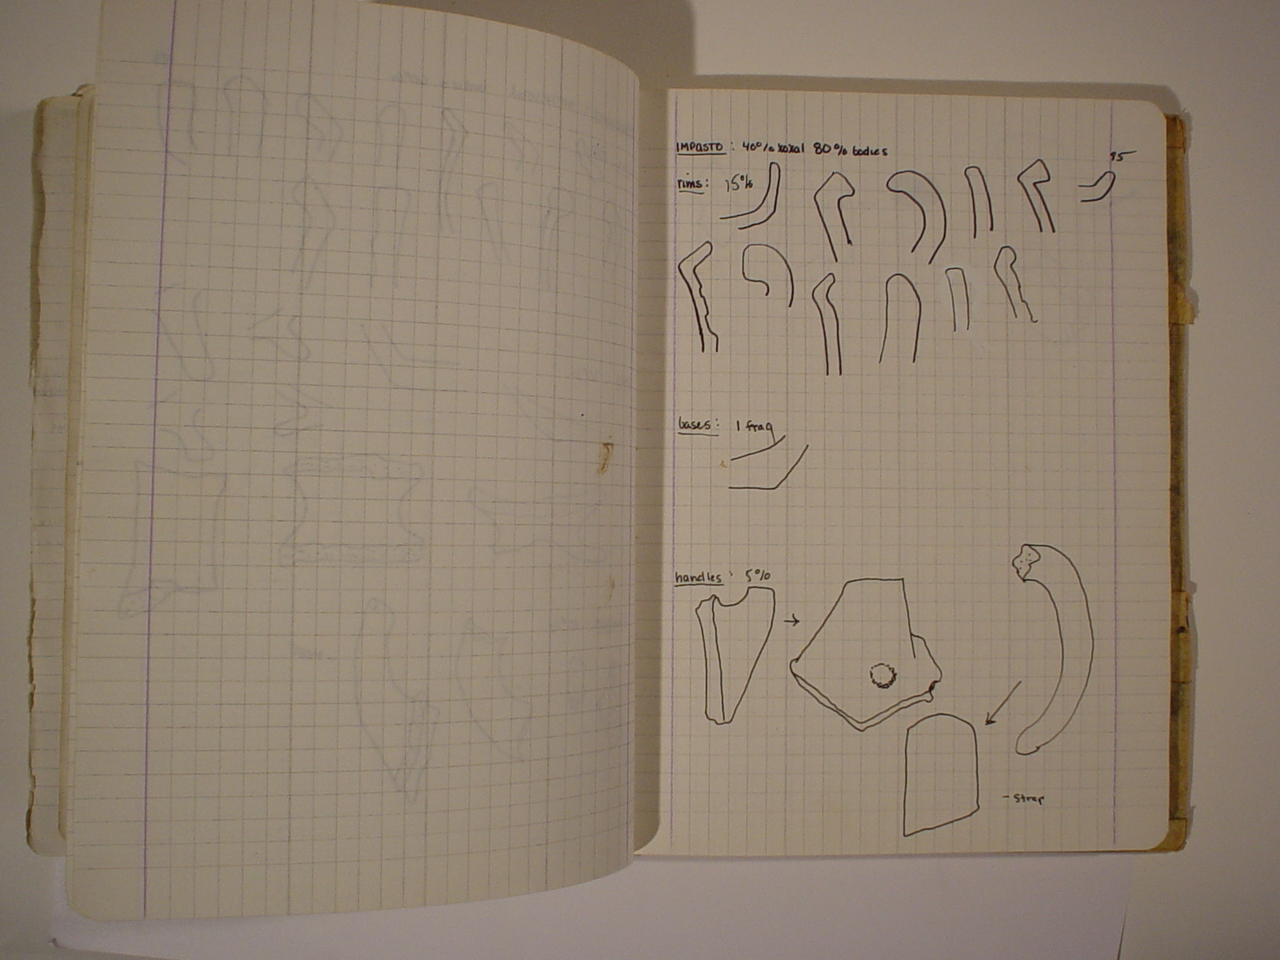 95
IMPASTO: 40% total 80% bodies
rims: 15%
bases: 1 frag
handles: 5%
- strap